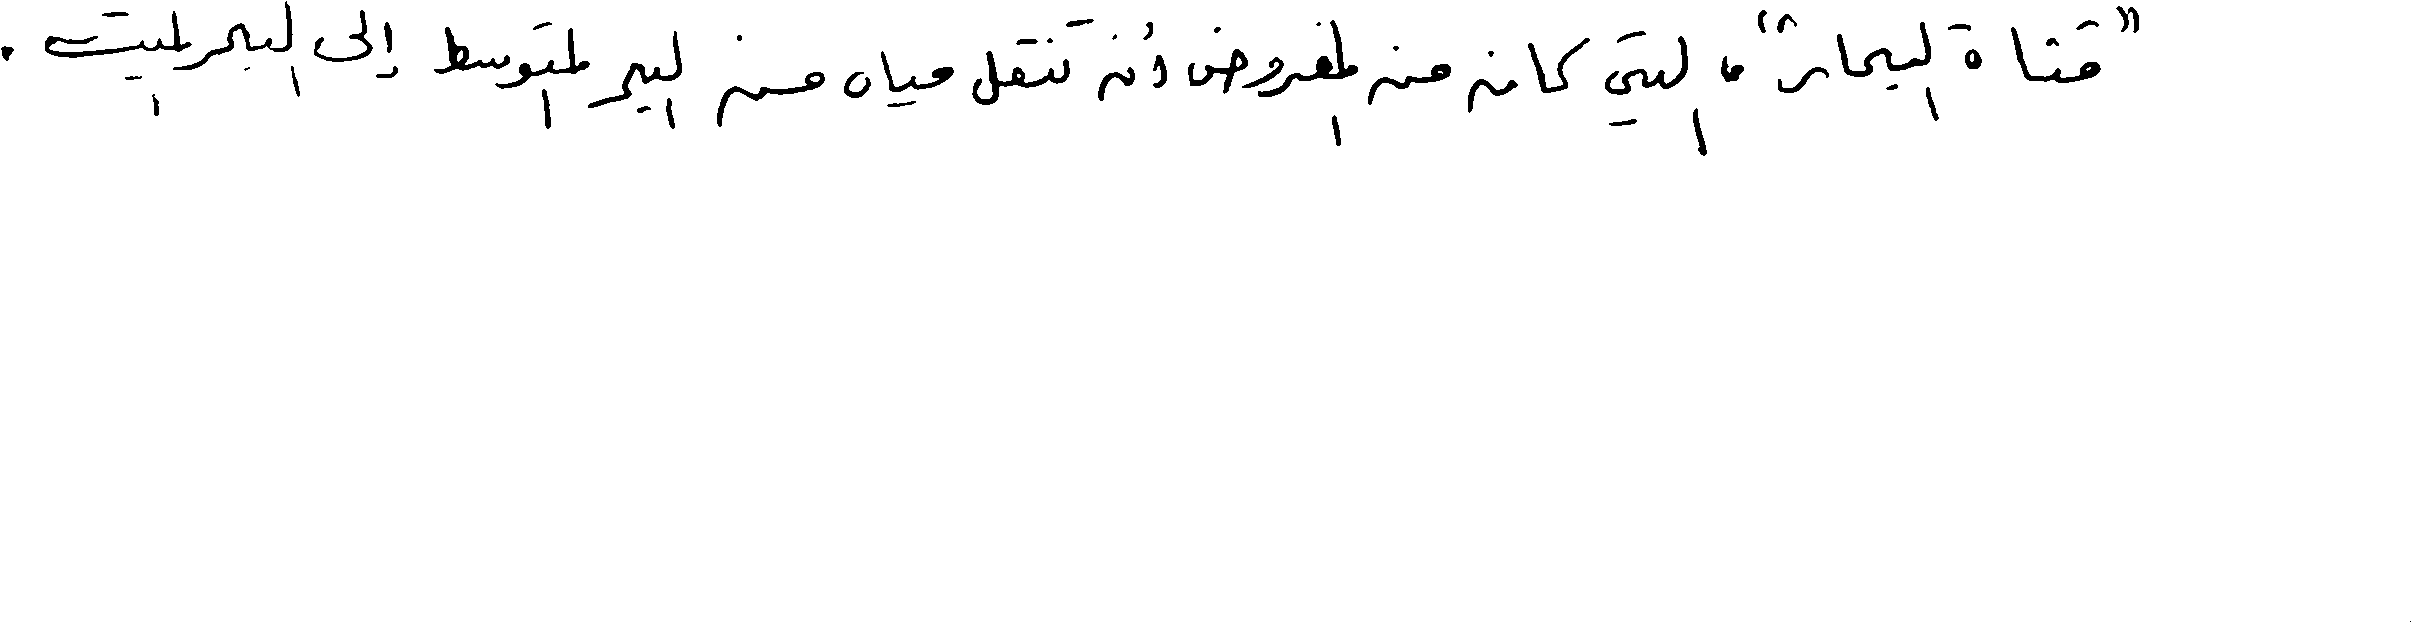 "قناة البحار"، التي كان من المفروض أن تنقل مياه من البحر المتوسط إلى البحر الميت.